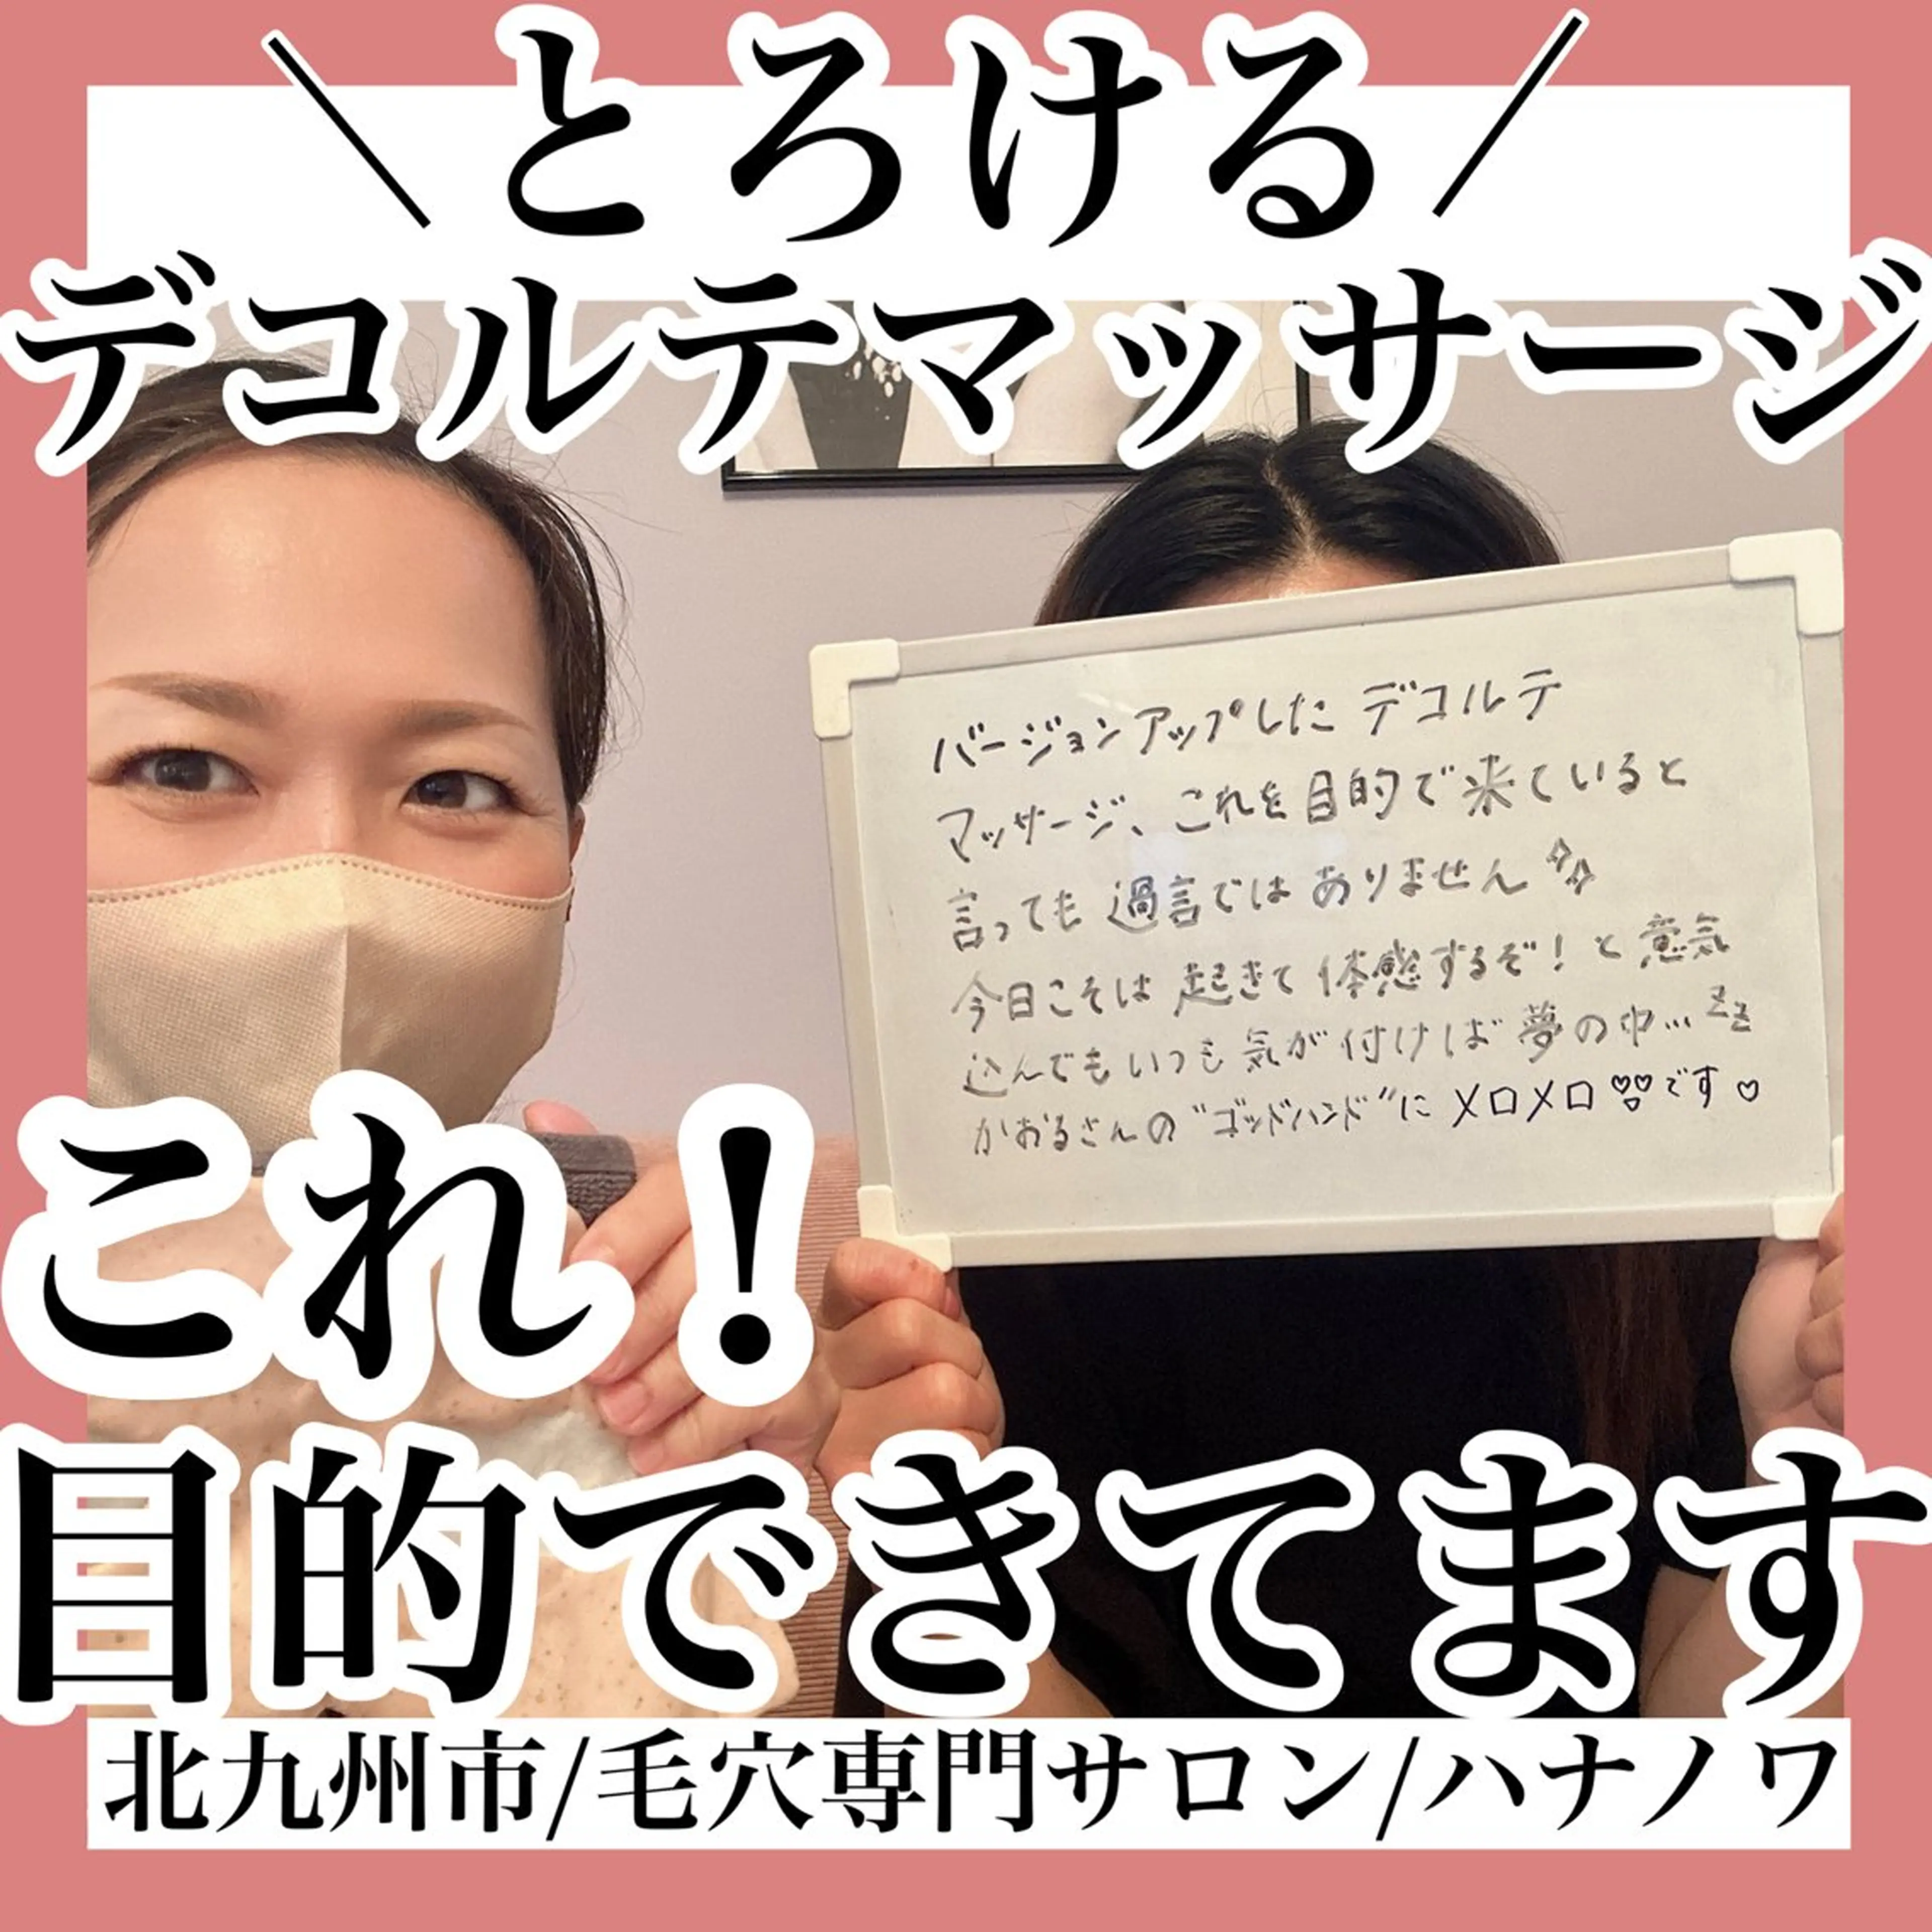 ＼とろける／
デコルテマッサージ
バージョンアップしたデコルテ
マッサージ、これを目的で来ていると
言っても過言ではありません
今日こそは起きて体感するぞ！と意気
込んでもいつも気が付けば夢の中…zz
かおるさんの"ゴッドハンド"にメロメロ♡♡♡です♡
これ！
目的できてます
北九州市/毛穴専門サロン/ハナノワ